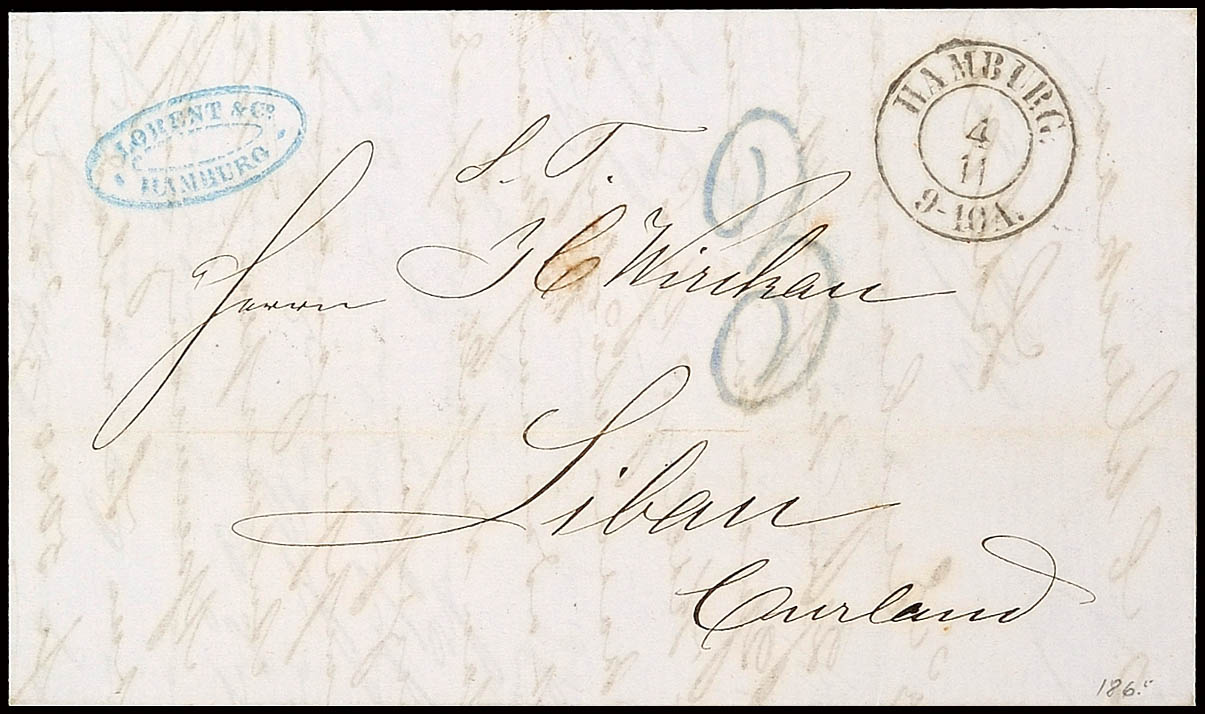 LORENT & Co.
HAMBURG
HAMBURG
4
11
9-10A.
S. T.
Herrn J C Wirckau
Libau
Curland
3
186.